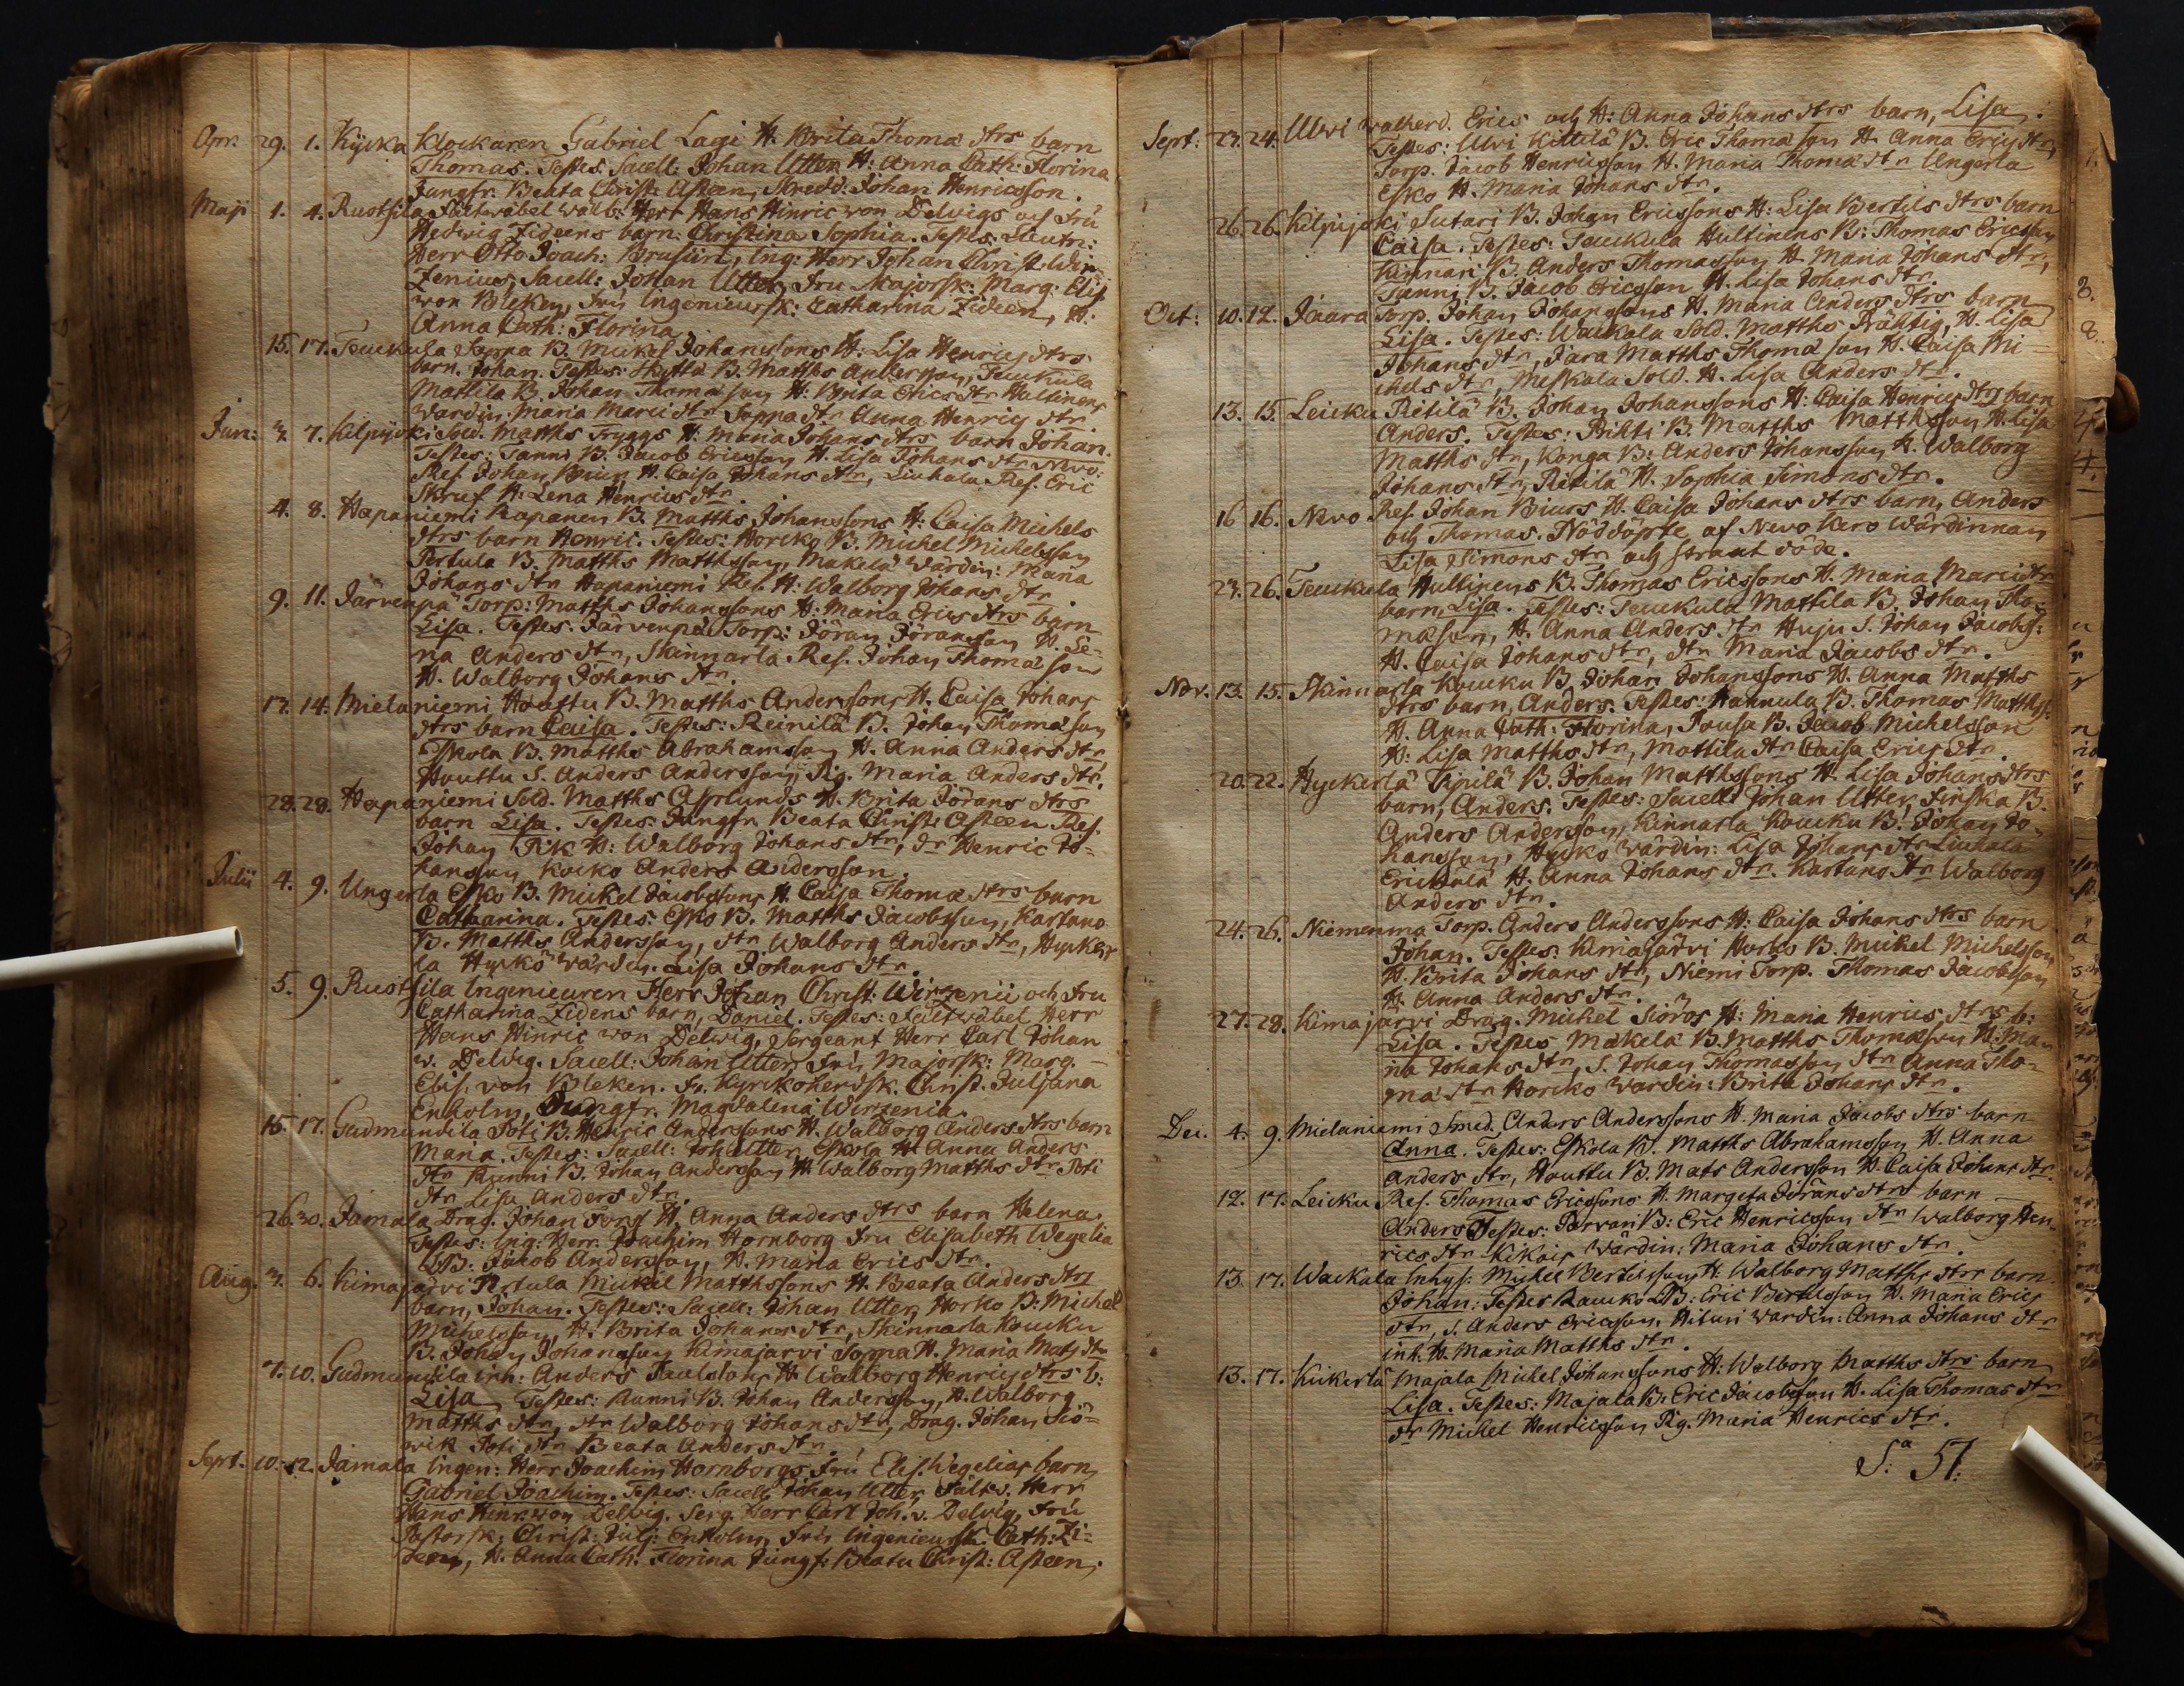 Apr: 29. 1. Kycka Klockaren Gabriel Lagi H. Brita Thomæ dtrs barn
Thomas. Testes. Sacell: Johan Utter H: Anna Cath: Florina
Jungfr. Beata Christ: Asteen, Skredd: Johan Henricsson.
Maji 1. 4. Rustsila Fältwäbel wälb: Herr Hans Hinric von Delwigs och Fru
Hedwig Zideens barn: Christina Sophia. Testes: Lieutn:
Herr Otto Joach: Brusiin, Ing: Herr Johan Christ: Wir-
zenius, Sacell: Johan Utter, Fru Majorsk: Marg: Elis
von Bleken, Fru Ingenieursk: Catharina Zideen, H:
Anna Cath: Florina.
15. 17. Teuckula Soppa B. Mickel Johanssons H: Lisa Henrics dtrs
barn. Johan. Testes: B. Matths Andersson, Teuckula
Mattila B. Johan Thomæson H: Brita Erics dtr Hultinens
wärdin: Maria Marci dtr Soppa dtr Anna Henrics dtr.
Jun: 3. 7. Kilpijoki Sold. Matths Tryggs H: Maria Johans dtrs barn Johan.
Testes: Tanni B. Jacob Ericsson H. Lisa Johans dtr Nevo:
Ref. Johan Biur H. Caisa Johans dtr, Liuhala Ref. Eric
Skruf H. Lena Henrics dtr.
4. 8. Hapaniemi Rapanen B. Matths Johanssons H: Caisa Michels
dtrs barn Henric. Testes: Horcko B. Michel Michelsson
Pertula B. Matths Matthsson, Makela wärdin: Maria
Johans dtr Hapaniemi Ref. H: Walborg Johans dtr.
9. 11. Järvenpä Torp: Matths Johanssons H: Maria Erics dtrs barn
Lisa. Testes: Järvenpä Torp: Jöran Göransson H. Le-
na Anders dtr, Skinnarla Ref. Johan Thomæson
H. Walborg Johans dtr.
13. 14. Mielaniemi Houttu B. Matths Anderssons H. Caisa Johans
dtrs barn Caisa. Testes: Reinilä B. Johan Thomæson
Eskola B. Matths Abrahamsson H. Anna Anders dtr
Houttu S. Anders Andersson, Pig. Maria Anders dtr.
28. 28. Hapaniemi Sold. Matths Asplunds H. Brita Jörans dtrs
barn Lisa. Testes: Jungfr. Beata Christ: Asteen Ref.
Johan Pik H: Walborg Johans dtr, dr Henric Jo-
hansson Kocko Anders Andersson.
Julii 4. 9. Ungerla Esko B. Mickel Jacobssons H. Caisa Thomæ dtrs barn
Catharina. Testes. Esko B. Matths Jacobsson, Kartano
B. Matths Andersson, dtr Walborg Anders dtr, Hycker-
la Hyckö wärdin. Lisa Johans dtr.
5. 9. Rustsila Ingenieuren Herr Johan Christ: Wirzenii och Fru
Catharina Zidens barn, Daniel. Testes: Fältwäbel Herr
Hans Hinric von Delwig, Sergeant Herr Carl Johan
v. Delvig. Sacell: Johan Utter, Fru Majorsk: Marg.
Elis. von Bleken. Fr. Kyrckoherdsk. Christ. Juliana
Enholm, Jungfr. Magdalena Wirzenia.
15. 17. Gudmundila Poti B. Henric Anderssons H. Walborg Anders dtrs barn
Maria. Testes: Sacell: Joh: Utter, Eskola H. Anna Anders
dtr Runni B. Johan Andersson H. Walborg Matths dtr Poti
dtr Lisa Anders dtr.
26. 30. Jamala Drag. Johan Forss H. Anna Anders dtrs barn Helena.
Testes: Ing: Herr. Joachim Hornborg Fru Elisabeth Wegelia
B: Jacob Andersson, H. Maria Erics dtr.
Aug. 3. 6. Kimajärvi Pertula Mickel Matthssons H. Beata Anders dtrs
barn, Johan. Testes: Sacell: Johan Utter, Horko B: Michel
Michelsson, H. Brita Johans dtr, Skinnarla Koucku
B. Johan Johansson Kimajarvi Soppa H. Maria Mats dtr
7. 10. Gudmundila inh: Anders Paulssons H. Walborg Henrics dtrs b:
Lisa. Testes: Runni B. Johan Andersson, H. Walborg
Matths dtr, dtr Walborg Johans dtr, Drag. Johan Siö-
wik Poti dtr Beata Anders dtr.
Sept. 10. 12. Jamala Ingen: Herr Joachim Hornborgs Fru Elis. Wegelias barn
Gabriel Joachim. Testes: Sacell Johan Utter, Fältv. Herr
Hans Hinr. von Delwig. Serg. Herr Carl Joh. v. Delvig, Fru
Pastorsk: Christ: Julj: Enholm, Fru Ingenieursk. Cath: Zi-
deen, H. Anna Cath: Florina Jungfr. Beata Christ: Asteen.
Sept: 23. 24. Uwi walherd. Erics och H: Anna Johans dtrs barn, Lisa.
Testes: Uvi Kittilä B. Eric Thomæson H. Anna Erics dtr,
Torp. Jacob Henricsson H. Maria Thomæ dtr Ungerla
Esko H. Maria Johans dtr.
26. 26. Kilpijoki Sutari B. Johan Ericssons H: Lisa Bertils dtrs barn
Caisa. Testes: Teuckula Hultinens B: Thomas Ericsson
Kinnari B. Anders Thomasson H. Maria Johans dtr,
Tanni B. Jacob Ericsson H. Lisa Johans dtr.
Oct: 10. 12. Jaara Torp. Johan Johanssons H. Maria Anders dtrs barn
Lisa. Testes: Wackala Sold. Matths Prähtig, H. Lisa
Johans dtr, Jara Matths Thomæson H. Caisa Mi-
chels dtr, Meskala Sold. H. Lisa Anders dtr.
13. 15. Leicku Pietilä B. Johan Johanssons H: Caisa Henrics dtrs barn
Anders. Testes: Prihti B. Matths Matthsson H. Lisa
Matths dtr, Konga B: Anders Johansson H. Walborg
Johans dtr, Pietilä H. Sophia Simons dtr.
16 16. Nevo Ref. Johan Biurs H. Caisa Johans dtrs barn, Anders
och Thomas. Nöddöpte af Nevo Kero Wärdinnan
Lisa Simons dtr och straxt döde.
23. 26. Teuckula Hultinens B. Thomas Ericssons H. Maria Marci dtr
barn, Lisa. Testes: Teuckula Mattila B. Johan Tho-
mæson, H. Anna Anders dtr Huju S. Johan Jacobs:
H. Caisa Johans dtr, dtr Maria Jacobs dtr.
Nov. 13. 15. Skinnarla Koucku B. Johan Johanssons H. Anna Matths
dtrs barn, Anders. Testes: Hannula B. Thomas Matths:
H. Anna Cath: Florina, Jousa B. Jacob Michelsson
H: Lisa Matths dtr, Mattila dtr Caisa Erics dtr.
20. 22. Hyckerlä Sipilä B. Johan Matthssons H. Lisa Johans dtrs
barn, Anders. Testes: Sacell: Johan Utter, Finska B.
Anders Andersson, Kinnarla Koucku B. Johan Jo-
hansson, Hycko wärdin: Lisa Johans dtr Liuhala
Erickälä H. Anna Johans dtr. Kartano dtr Walborg
Anders dtr.
24. 26. Niemenma Torp. Anders Anderssons H: Caisa Johans dtrs barn
Johan. Testes: Kimajärvi Horko B. Mickel Michelsson
H. Brita Johans dtr, Niemi Torp. Thomas Jacobsson
H. Anna Anders dtr.
27. 29. Kimajärvi Drag. Mickel Siöros H: Maria Henrics dtrs b:
Lisa. Testes Makela B. Matths Thomæson H. Ma-
ria Johans dtr, S. Johan Thomasson dtr Anna Tho-
mæ dtr Horcko wärdin: Brita Johans dtr.
Dec. 4. 9. Mielaniemi Smed. Anders Anderssons H. Maria Jacobs dtrs barn
Anna. Testes: Eskola B. Matths Abrahamsson H. Anna
Anders dtr, Houttu B. Mats Andersson H. Caisa Johans dtr.
12. 17. Leicku Ref. Thomas Ericssons H. Margeta Jörans dtrs barn
Anders Testes: Parvari B: Eric Henricsson dtr Walborg Hen-
rics dtr Kikois Wärdin: Maria Johans dtr.
13. 17. Wackala Inhys: Michel Bertilssons H: Walborg Matths dtrs barn
Johan: Testes Raucko B: Eric Bertilsson H. Maria Erics
dtr, S. Anders Ericsson, Hituri wardin: Anna Johans dtr
inh. H. Maria Matths dtr.
13. 17. Kickerlä Majala Michel Johanssons H: Walborg Matths dtrs barn
Lisa. Testes: Majala B: Eric Jacobsson H. Lisa Thomas dtr
dr Michel Henricsson Pig. Maria Henrics dtr.
S:a 57: